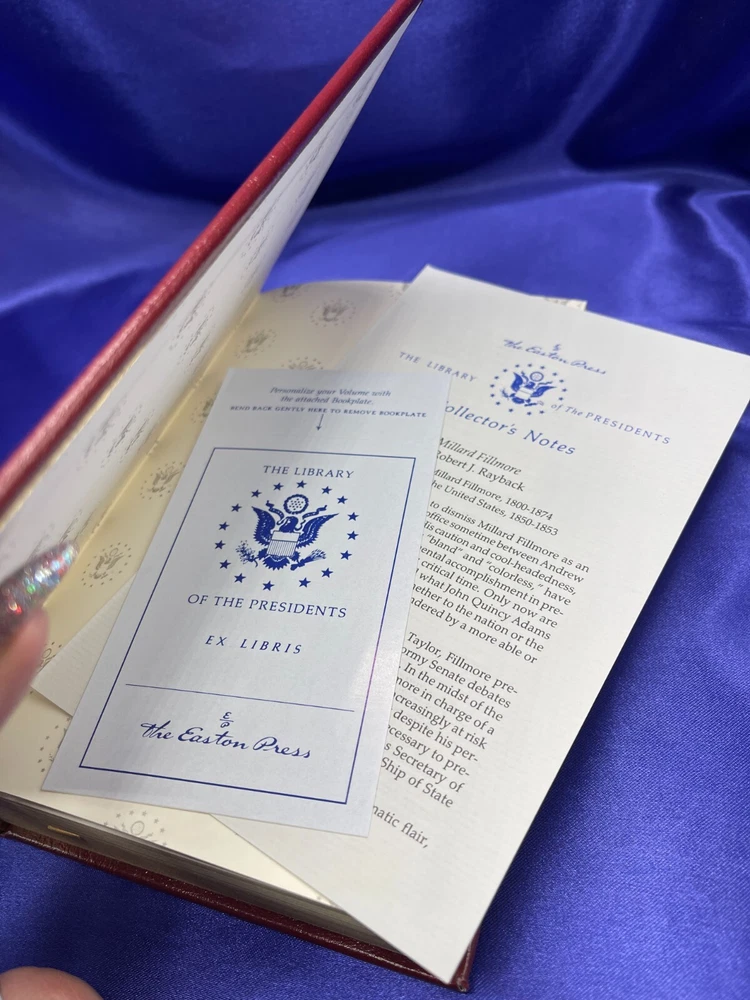 Personalize your Volume with
the attached Bookplate.
BEND BACK GENTLY HERE TO REMOVE BOOKPLATE
THE LIBRARY
OF THE PRESIDENTS
EX LIBRIS
E
P
The Easton Press
The Easton Press
THE LIBRARY of The PRESIDENTS
ollector's Notes
Millard Fillmore
obert J. Rayback
Millard Fillmore, 1800-1874
he United States, 1850-1853
to dismiss Millard Fillmore as an
office sometime between Andrew
is caution and cool-headedness,
"bland" and "colorless," have
ental accomplishment in pre-
critical time. Only now are
what John Quincy Adams
ether to the nation or the
dered by a more able or
Taylor, Fillmore pre-
ormy Senate debates
. In the midst of the
more in charge of a
creasingly at risk
despite his per-
cessary to pre-
s Secretary of
Ship of State
matic flair,